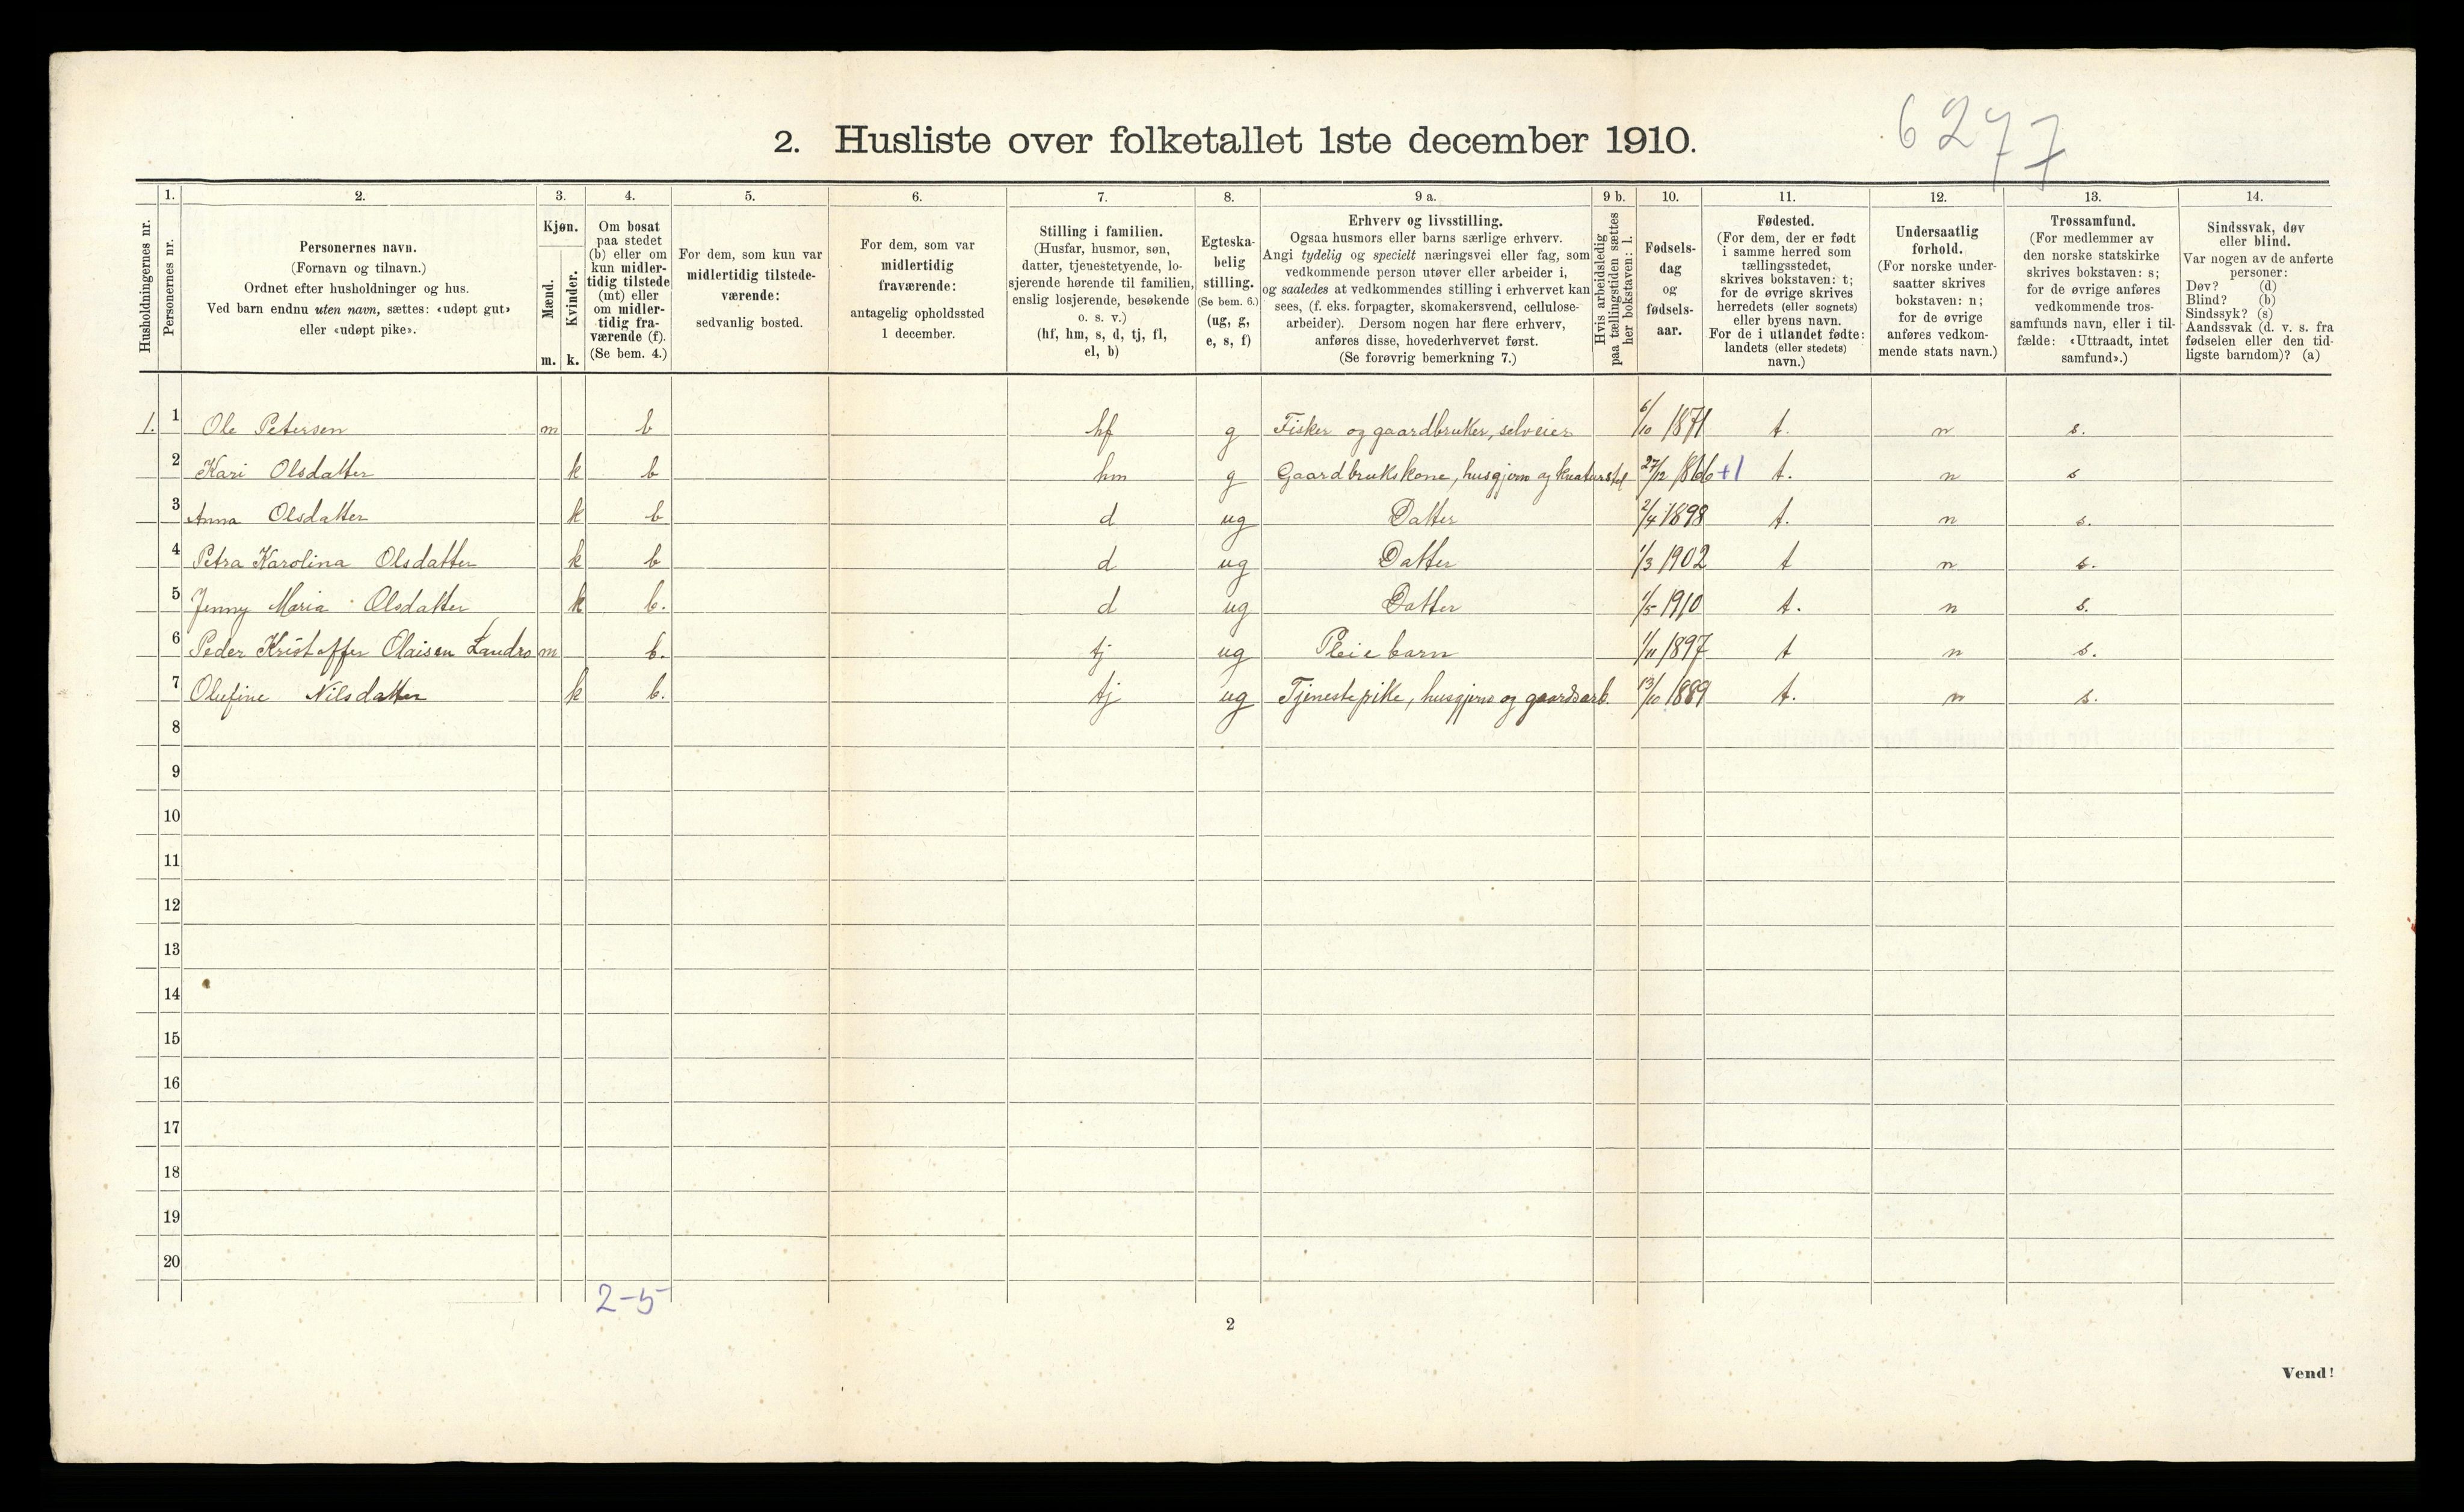 6277
2. Husliste over folketallet 1ste december 1910.
Husholdningernes nr.
1.
Personernes nr.
2.
Personernes navn.
(Fornavn og tilnavn.)
Ordnet efter husholdninger og hus.
Ved barn endnu uten navn, sættes: «udøpt gut»
eller «udøpt pike».
3.
Kjøn.
Mænd.
m.
Kvinder.
k.
4.
Om bosat
paa stedet
(b) eller om
kun midler-
tidig tilstede
(mt) eller
om midler-
tidig fra-
værende (f).
(Se bem. 4.)
5.
For dem, som kun var
midlertidig tilstede-
værende:
sedvanlig bosted.
6.
For dem, som var
midlertidig
fraværende:
antagelig opholdssted
1 december.
7.
Stilling i familien.
(Husfar, husmor, søn,
datter, tjenestetyende, lo-
sjerende hørende til familien,
enslig losjerende, besøkende
o. s. v.)
(hf, hm, s, d, tj, fl,
el, b)
8.
Egteska-
belig
stilling.
(Se bem. 6.)
(ug, g,
e, s, f)
9 a.
Erhverv og livsstilling.
Ogsaa husmors eller barns særlige erhverv.
Angi tydelig og specielt næringsvei eller fag, som
vedkommende person utøver eller arbeider i,
og saaledes at vedkommendes stilling i erhvervet kan
sees, (f. eks. forpagter, skomakersvend, cellulose-
arbeider). Dersom nogen har flere erhverv,
anføres disse, hovederhvervet først.
(Se forøvrig bemerkning 7.)
9 b.
Hvis arbeidsledig
paa tællingstiden sættes
her bokstaven: l.
10.
Fødsels-
dag
og
fødsels-
aar.
11.
Fødested.
(For dem, der er født
i samme herred som
tællingsstedet,
skrives bokstaven: t;
for de øvrige skrives
herredets (eller sognets)
eller byens navn.
For de i utlandet fødte:
landets (eller stedets)
navn.)
12.
Undersaatlig
forhold.
(For norske under-
saatter skrives
bokstaven: n;
for de øvrige
anføres vedkom-
mende stats navn.)
13.
Trossamfund.
(For medlemmer av
den norske statskirke
skrives bokstaven: s;
for de øvrige anføres
vedkommende tros-
samfunds navn, eller i til-
fælde: «Uttraadt, intet
samfund».)
14.
Sindssvak, døv
eller blind.
Var nogen av de anførte
personer:
Døv? (d)
Blind? (b)
Sindssyk? (s)
Aandssvak (d. v. s. fra
fødselen eller den tid-
ligste barndom)? (a)
1. 1 Ole Petersen m b hf g Fisker og gaardbruker, selveier 6/10 1871 t. n s.
2 Kari Olsdatter k b hm g Gaardbrukskone, husgjern og kreaturstel 27/12 1866 +1 t. n s
3 Anna Olsdatter k b d ug Datter 2/4 1898 t. n s.
4 Petra Karolina Olsdatter k b d ug Datter 1/3 1902 t n s.
5 Jenny Maria Olsdatter k b. d ug Datter 1/5 1910 t. n s.
6 Peder Kristoffer Olaisen Landro m b. tj ug Pleiebarn 1/11 1897 t n s.
7 Olufine Nilsdatter k b. tj ug Tjenestepike, husgjern og gaardsarb. 13/10 1889 t. n s.
8
9
10
11
12
13
14
15
16
17
18
19
20
2-5
2
Vend!